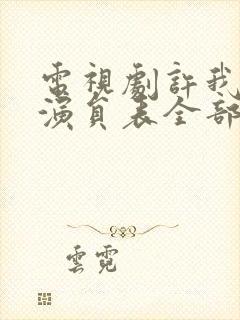 電視劇許我
演員表全部
雲霓